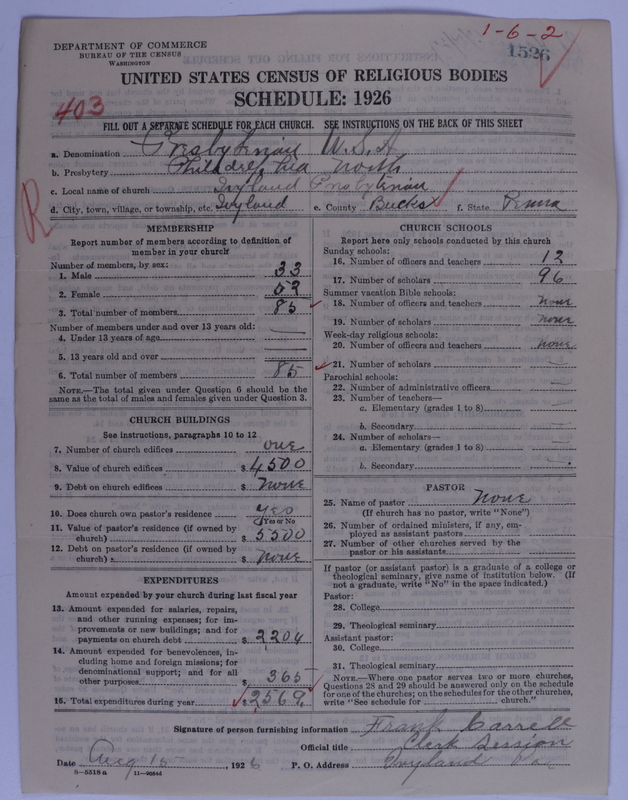 1-6-2
1526
DEPARTMENT OF COMMERCE
BUREAU OF THE CENSUS
WASHINGTON
UNITED STATES CENSUS OF RELIGIOUS BODIES
SCHEDULE: 1926
403
FILL OUT A SEPARATE SCHEDULE FOR EACH CHURCH. SEE INSTRUCTIONS ON THE BACK OF THIS SHEET
a. Denomination Presbyterian U.S.A
b. Presbytery Philadelphia North
c. Local name of church Ivyland Presbyterian
d. City, town, village, or township, etc. Ivyland e. County Bucks f. State Penna
R
MEMBERSHIP
Report number of members according to definition of
member in your church
Number of members, by sex:
1. Male 33
2. Female 52
3. Total number of members 85
Number of members under and over 13 years old:
4. Under 13 years of age
5. 13 years old and over
6. Total number of members 85
NOTE.—The total given under Question 6 should be the
same as the total of males and females given under Question 3.
CHURCH BUILDINGS
See instructions, paragraphs 10 to 12
7. Number of church edifices one
8. Value of church edifices $ 4500
9. Debt on church edifices $ none
10. Does church own pastor's residence yes
Yes or No
11. Value of pastor's residence (if owned by
church) $ 5500
12. Debt on pastor's residence (if owned by
church) $ none
EXPENDITURES
Amount expended by your church during last fiscal year
13. Amount expended for salaries, repairs,
and other running expenses; for im-
provements or new buildings; and for
payments on church debt $ 2204
14. Amount expended for benevolences, in-
cluding home and foreign missions; for
denominational support; and for all
other purposes $ 365
15. Total expenditures during year $ 2569
CHURCH SCHOOLS
Report here only schools conducted by this church
Sunday schools:
16. Number of officers and teachers 12
17. Number of scholars 96
Summer vacation Bible schools:
18. Number of officers and teachers none
19. Number of scholars none
Week-day religious schools:
20. Number of officers and teachers none
21. Number of scholars
Parochial schools:
22. Number of administrative officers
23. Number of teachers—
a. Elementary (grades 1 to 8)
b. Secondary
24. Number of scholars—
a. Elementary (grades 1 to 8)
b. Secondary
PASTOR
25. Name of pastor None
(If church has no pastor, write "None")
26. Number of ordained ministers, if any, em-
ployed as assistant pastors
27. Number of other churches served by the
pastor or his assistants
If pastor (or assistant pastor) is a graduate of a college or
theological seminary, give name of institution below. (If
not a graduate, write "No" in the space indicated.)
Pastor:
28. College
29. Theological seminary
Assistant pastor:
30. College
31. Theological seminary
NOTE.—Where one pastor serves two or more churches,
Questions 28 and 29 should be answered only on the schedule
for one of the churches; on the schedules for the other churches,
write "See schedule for church."
Signature of person furnishing information Frank Carrell
Official title Clerk Session
Date Aug 18, 1926 P. O. Address Ivyland Pa
8—5518 a